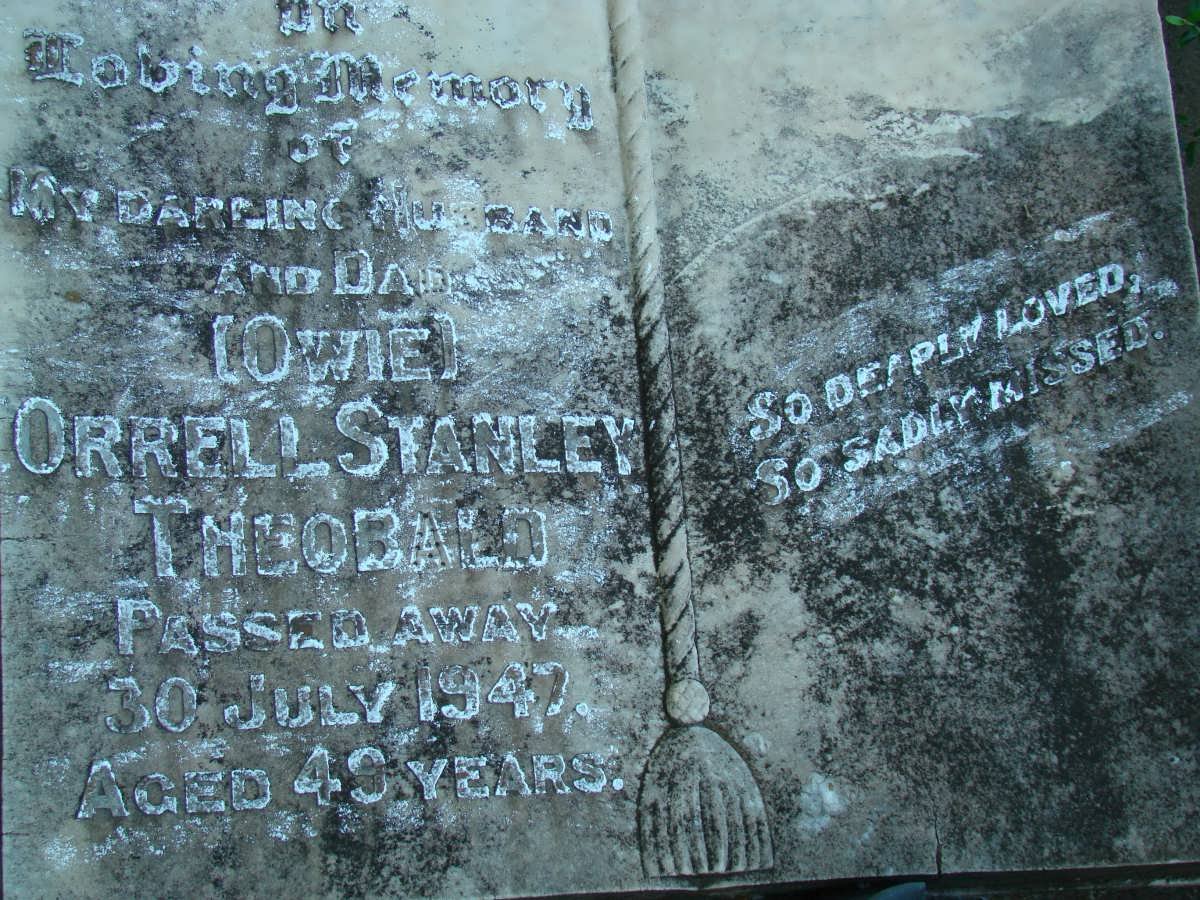 In
Loving Memory
of
My darling Husband
and Dad
(Owie)
Orrell Stanley
Theobald
Passed away
30 July 1947.
Aged 49 years.
So deeply loved,
So sadly missed.